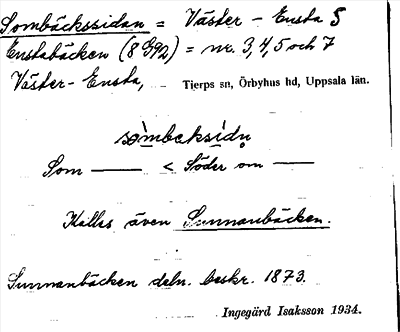 Sombäckssidan = Väster - Ensta 5
Enstabäcken (8 G92) = nr. 3, 4, 5 och 7
Väster - Ensta, Tierps sn, Örbyhus hd, Uppsala län.
sòmbeksídų
Som —— < Söder om ——
Kallas även Sunnanbäcken.
Sunnanbäcken deln. beskr. 1873.
Ingegärd Isaksson 1934.